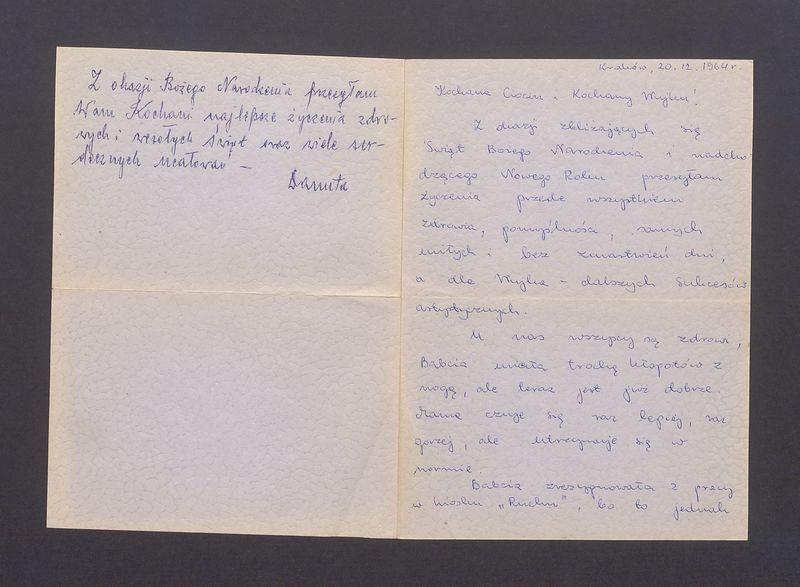 Z okazji Bożego Narodzenia przesyłam
Wam Kochani najlepsze życzenia zdro-
wych i wesołych Świąt oraz wiele ser-
decznych ucałowań –
Danuta
Kraków, 20.12.1964 r.
Kochana Ciociu i Kochany Wujku!
Z okazji zbliżających się
Świąt Bożego Narodzenia i nadcho
dzącego Nowego Roku przesyłam
życzenia przede wszystkiem
zdrowia, pomyślności, samych
miłych i bez zmartwień dni,
a dla Wujka – dalszych sukcesów
artystycznych.
U nas wszyscy są zdrowi,
Babcia miała trochę kłopotów z
nogą, ale teraz jest już dobrze.
Mama czuje się raz lepiej, raz
gorzej, ale utrzymuje się w
normie.
Babcia zrezygnowała z pracy
w kiosku „Ruchu", bo to jednak